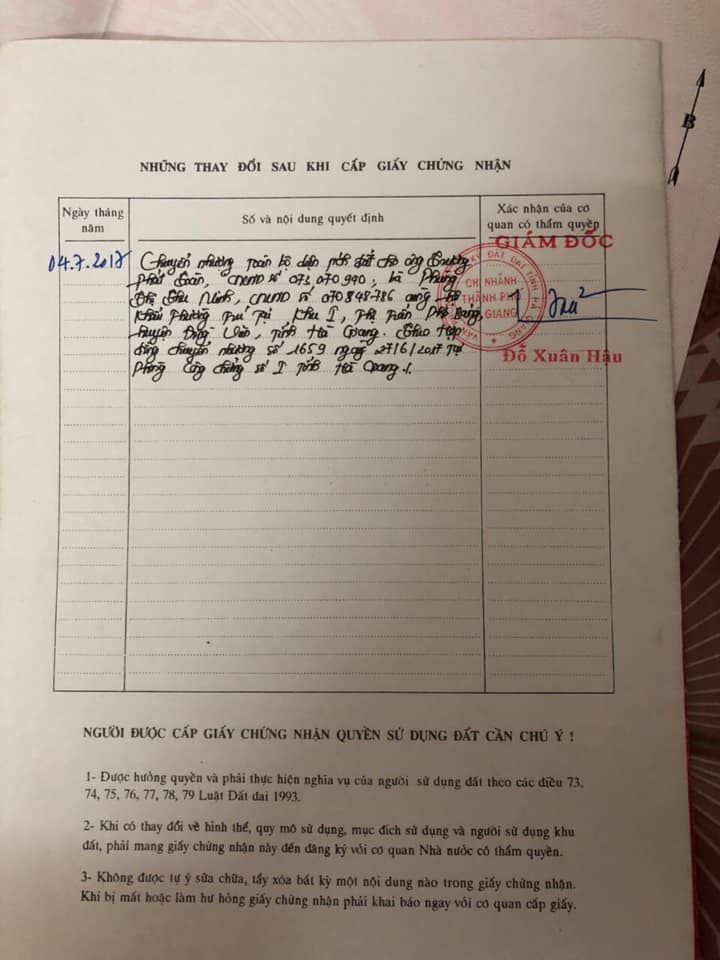 B
NHỮNG THAY ĐỔI SAU KHI CẤP GIẤY CHỨNG NHẬN
Ngày tháng năm
Số và nội dung quyết định
Xác nhận của cơ quan có thẩm quyền
04.7.2017
Chuyển nhượng toàn bộ diện tích đất cho ông Dương
Phát Toàn, CMND số 073 070 940, bà Phùng
Thị Thu Ninh, CMND số 070 848 786 cùng hộ
khẩu thường trú tại Khu I, Thị trấn Phó Bảng,
Huyện Đồng Văn, Tỉnh Hà Giang. Theo Hợp
đồng chuyển nhượng số 1659 ngày 27/6/2017 tại
Phòng Công chứng số I tỉnh Hà Giang.
GIÁM ĐỐC
CHI NHÁNH
THÀNH PHỐ
GIANG
Đỗ Xuân Hậu
NGƯỜI ĐƯỢC CẤP GIẤY CHỨNG NHẬN QUYỀN SỬ DỤNG ĐẤT CẦN CHÚ Ý !
1- Được hưởng quyền và phải thực hiện nghĩa vụ của người sử dụng đất theo các điều 73,
74, 75, 76, 77, 78, 79 Luật Đất đai 1993.
2- Khi có thay đổi về hình thể, quy mô sử dụng, mục đích sử dụng và người sử dụng khu
đất, phải mang giấy chứng nhận này đến đăng ký với cơ quan Nhà nước có thẩm quyền.
3- Không được tự ý sửa chữa, tẩy xóa bất kỳ một nội dung nào trong giấy chứng nhận.
Khi bị mất hoặc làm hư hỏng giấy chứng nhận phải khai báo ngay với cơ quan cấp giấy.